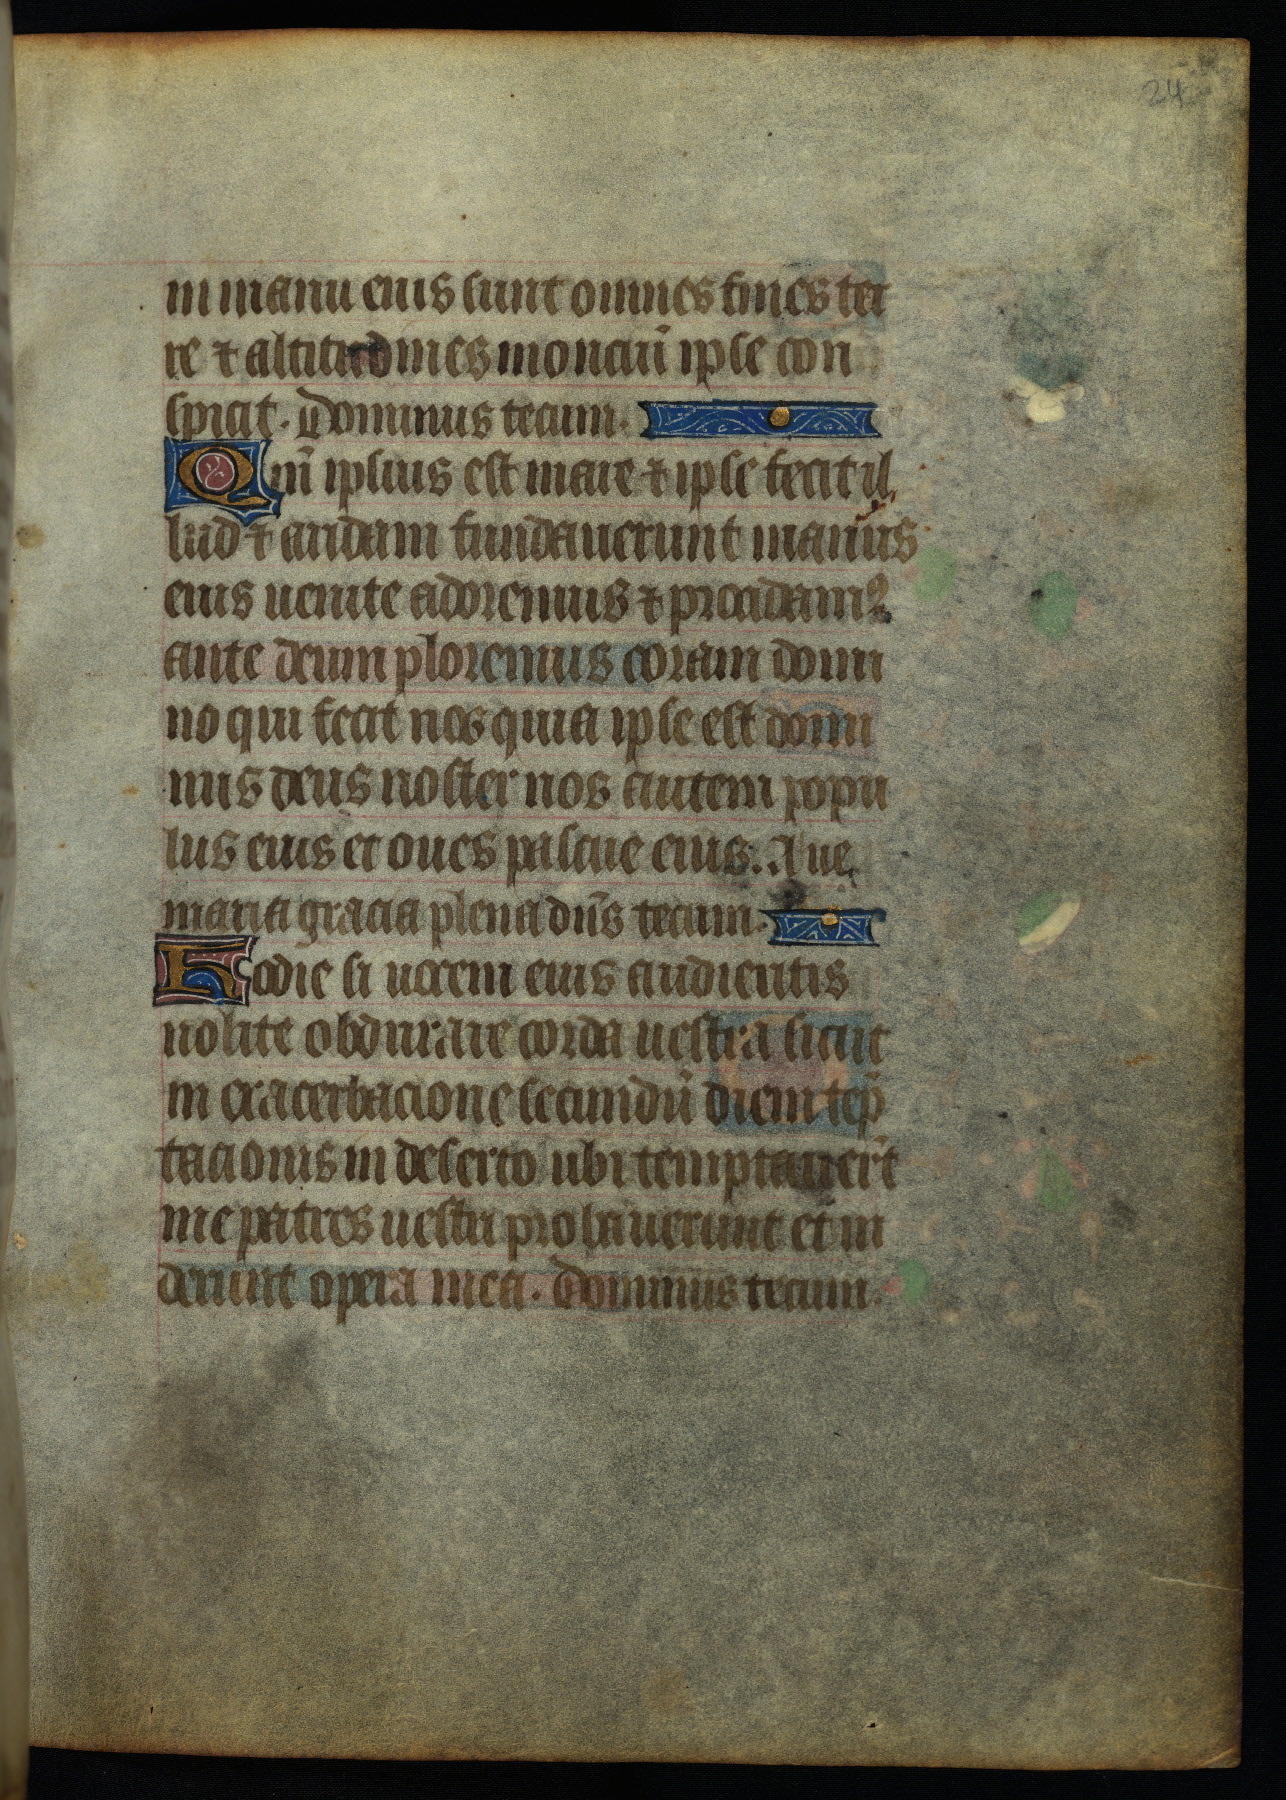 24
in manu eius sunt omnes fines ter
re ⁊ altitudines monciū ipse con
spicit. Dominus tecum.
Qm̄ ipsius est mare ⁊ ipse fecit il
lud ⁊ aridam fundauerunt manus
eius uenite adoremus ⁊ procidamꝰ
ante deum ploremus coram domi
no qui fecit nos quia ipse est domi
nus deus noster nos autem popu
lus eius et oues pascue eius. Aue
maria gracia plena dn̄s tecum.
Hodie si uocem eius audientis
nolite obdurare corda uestra sicut
in exacerbacione secundū diem tep̄
tacionis in deserto ubi temptauer̄t
me patres uestri probauerunt et ui
derunt opera mea. Dominus tecum.